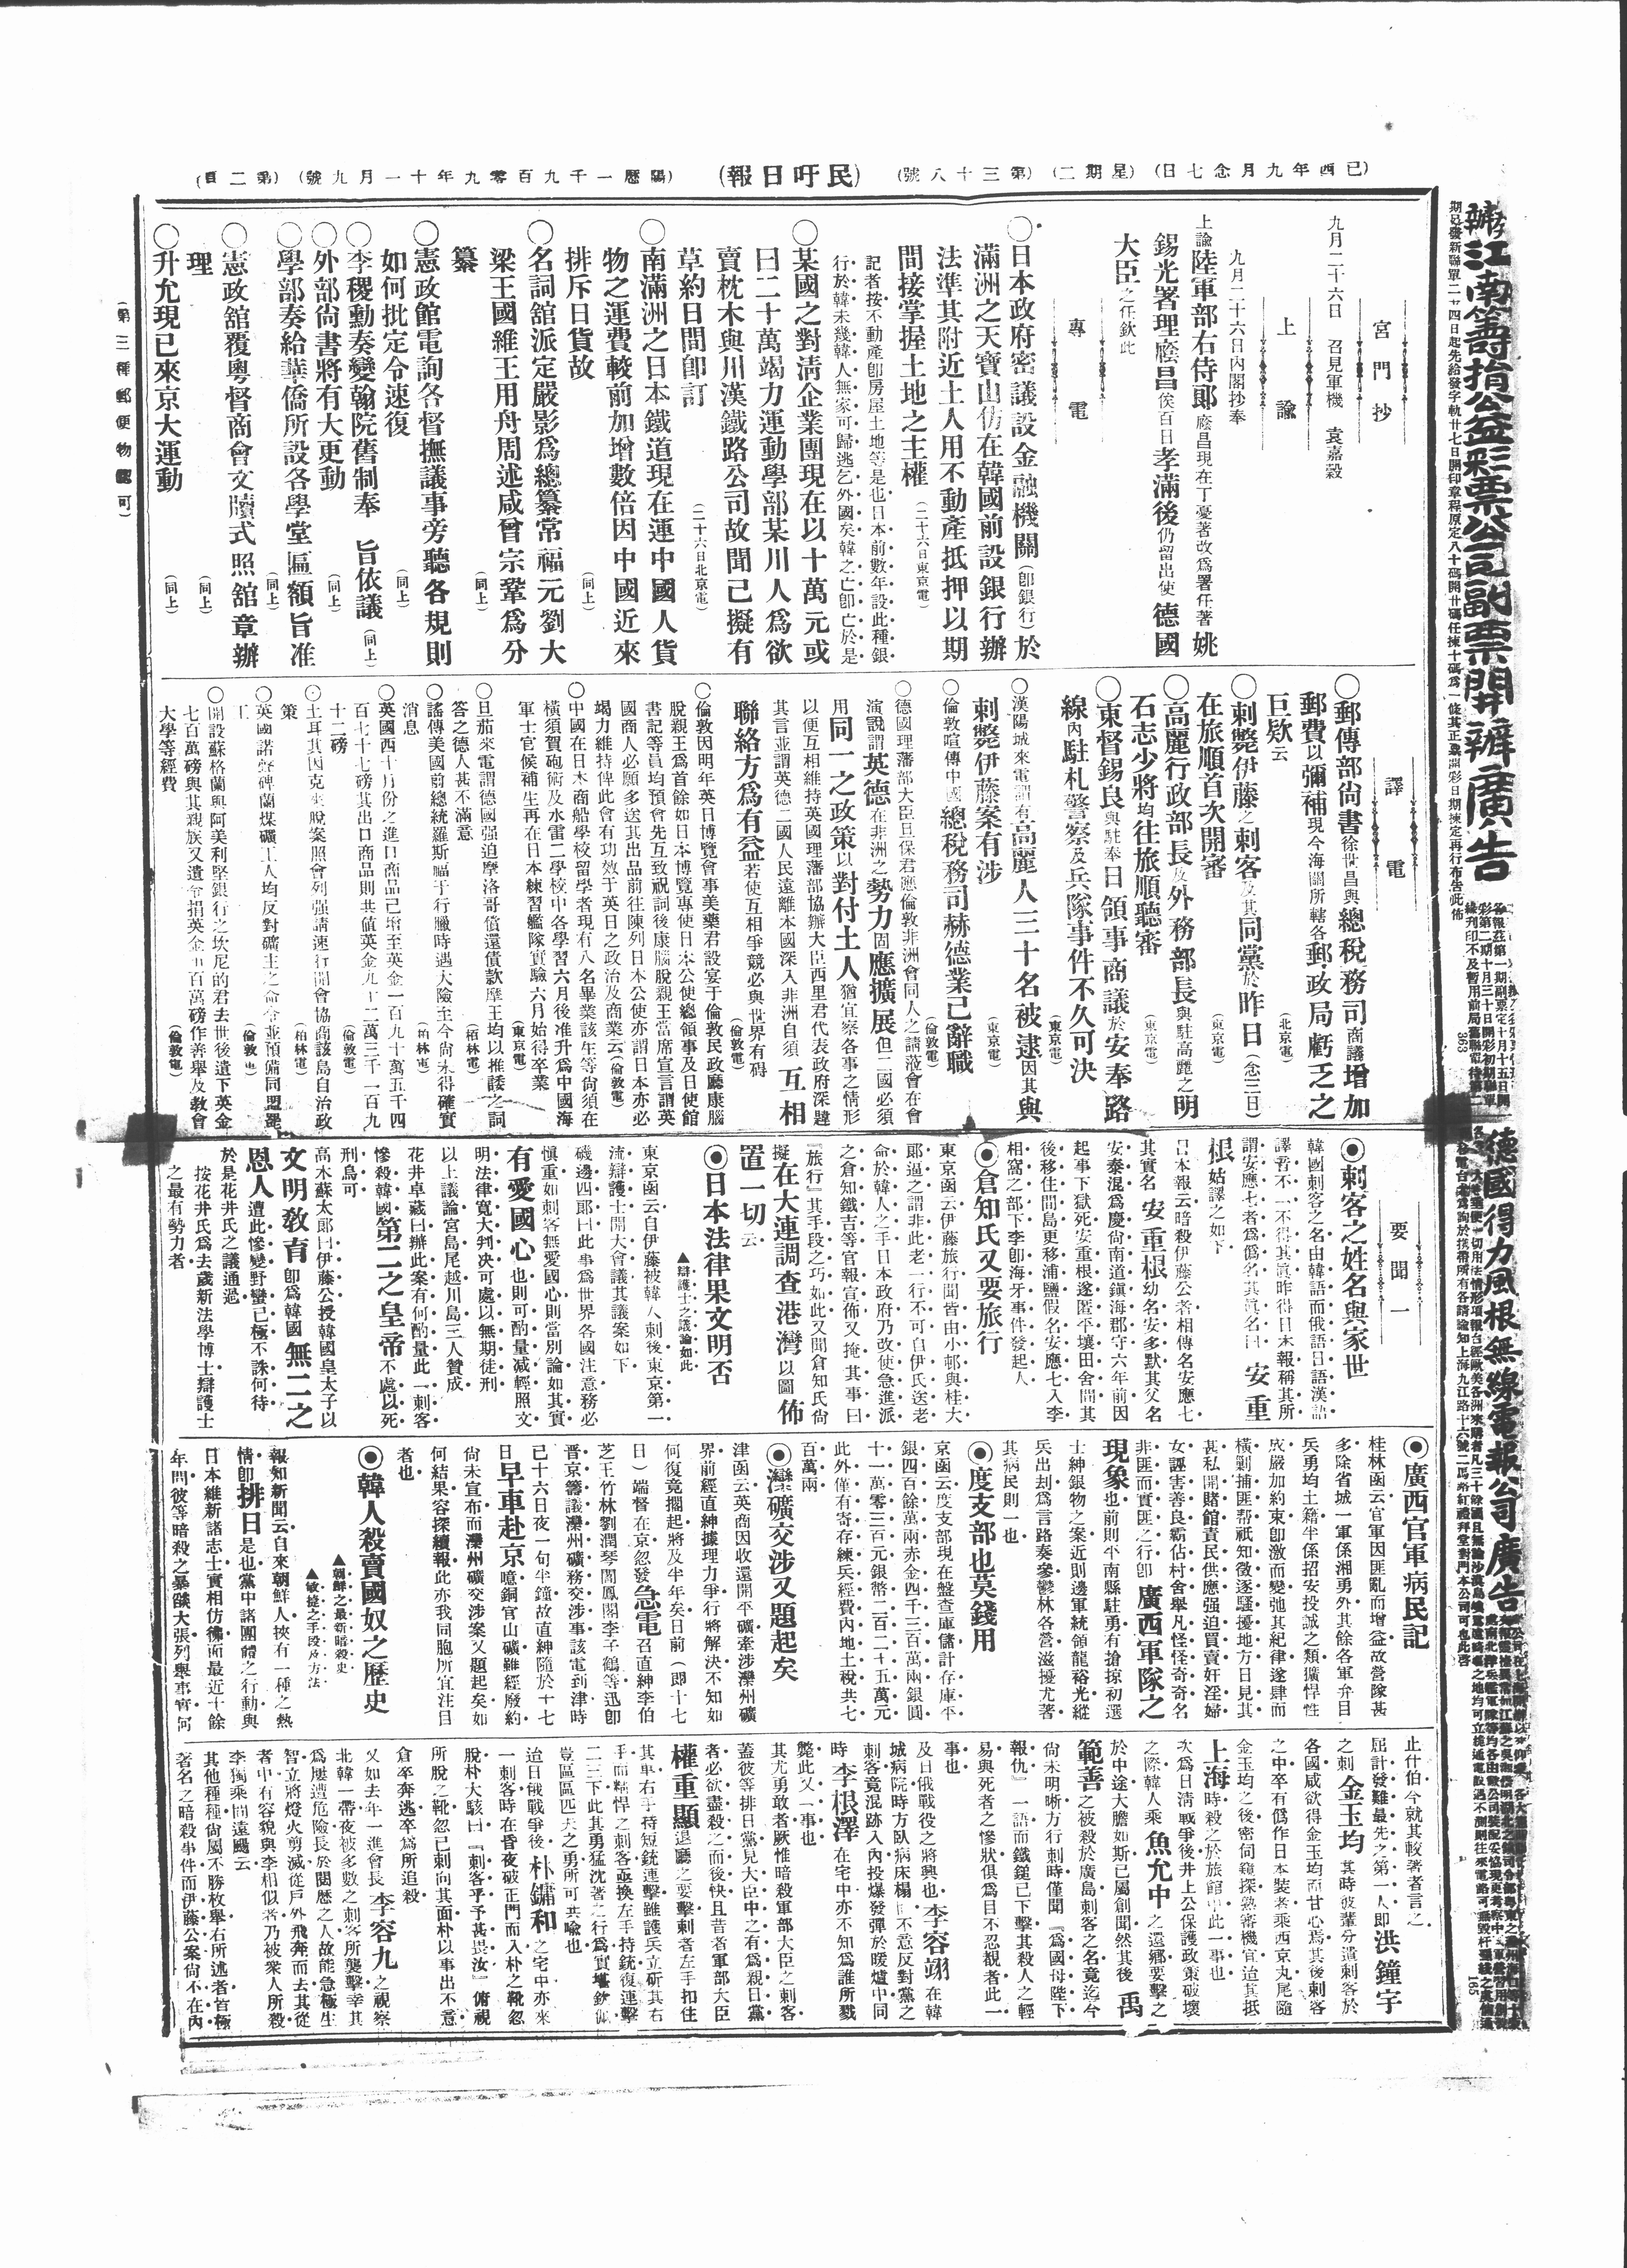 (己酉年九月念七日) (星期二) (第三十八號) 民吁日報 (陽曆一千九百零九年十一月九號) (第二頁)
宮門抄
九月二十六日 召見軍機 袁嘉穀
上諭
九月二十六日內閣抄奉
上諭陸軍部右侍郞廕昌現在丁憂著改爲署任著姚
錫光署理廕昌俟百日孝滿後仍留出使德國
大臣之任欽此
專電
○日本政府密議設金融機關(卽銀行)於
滿洲之天寶山仿在韓國前設銀行辦
法準其附近土人用不動產抵押以期
間接掌握土地之主權 (二十六日東京電)
記者按不動產卽房屋土地等是也日本前數年設此種銀
行於韓未幾韓人無家可歸逃乞外國矣韓之亡卽亡於是
○某國之對淸企業團現在以十萬元或
曰二十萬竭力運動學部某川人爲欲
賣枕木與川漢鐵路公司故聞已擬有
草約日間卽訂 (二十六日北京電)
○南滿洲之日本鐵道現在運中國人貨
物之運費較前加增數倍因中國近來
排斥日貨故 (同上)
○名詞舘派定嚴影爲總纂常福元劉大
梁王國維王用舟周述咸曾宗鞏爲分
纂 (同上)
○憲政館電詢各督撫議事旁聽各規則
如何批定令速復 (同上)
○李稷勳奏變翰院舊制奉 旨依議 (同上)
○外部尙書將有大更動 (同上)
○學部奏給華僑所設各學堂匾額旨准 (同上)
○憲政舘覆粤督商會文牘式照舘章辦
理 (同上)
○升允現已來京大運動 (同上)
(第三種郵便物認可)
譯電
○郵傳部尙書徐世昌與總稅務司商議增加
郵費以彌補現今海關所轄各郵政局虧乏之
巨欵云 (北京電)
○刺斃伊藤之刺客及其同黨於昨日(念三日)
在旅順首次開審 (東京電)
○高麗行政部長及外務部長與駐高麗之明
石志少將均往旅順聽審 (東京電)
○東督錫良與駐奉日領事商議於安奉路
線內駐札警察及兵隊事件不久可決 (東京電)
○漢陽城來電謂有高麗人三十名被逮因其與
刺斃伊藤案有涉 (東京電)
○倫敦喧傳中國總稅務司赫德業已辭職 (倫敦電)
○德國理藩部大臣旦保君應倫敦非洲會同人之請蒞會在會
演說謂英德在非洲之勢力固應擴展但二國必須
用同一之政策以對付土人猶宜察各事之情形
以便互相維持英國理藩部協辦大臣西里君代表政府深韙
其言並謂英德二國人民遠離本國深入非洲自須互相
聯絡方爲有益若使互相爭競必與世界有碍 (倫敦電)
○倫敦因明年英日博覽會事美樂君設宴于倫敦民政廳康腦
脫親王爲首餘如日本博覽專使日本公使總領事及日使館
書記等員均預會先互致祝詞後康腦脫親王當席宣言謂英
國商人必願多送其出品前往陳列日本公使亦謂日本亦必
竭力維持俾此會有功效于英日之政治及商業云(倫敦電)
○中國在日本商船學校留學者現有八名畢業該生等尙須在
橫須賀砲術及水雷二學校中各學習六月後准升爲中國海
軍士官候補生再在日本練習艦隊實驗六月始得卒業 (東京電)
○旦茄來電謂德國强迫摩洛哥償還債款摩王均以推諉之詞
答之德人甚不滿意 (柏林電)
○謠傳美國前總統羅斯福于行獵時遇大險至今尙未得確實
消息 (柏林電)
○英國西十月份之進口商品已增至英金一百九十萬五千四
百七十七磅其出口商品則共値英金九十二萬三千一百九
十二磅 (倫敦電)
策 (柏林電)
○英國諾登碑蘭煤礦工人均反對礦主之命令並預備同盟罷
工 (倫敦電)
○開設蘇格蘭與阿美利堅銀行之坎尼的君去世後遺下英金
七百萬磅與其親族又遺命捐英金百萬磅作善舉及敎會
大學等經費 (倫敦電)
要聞一
◉刺客之姓名與家世
韓國刺客之名由韓語而俄語日語漢語
譯者不一不得其眞昨得日本報稱其所
謂安應七者爲僞名其眞名曰 安重
根 姑譯之如下
日本報云暗殺伊藤公者相傳名安應七
其實名 安重根 幼名安多默其父名
安泰混爲慶尙南道鎭海郡守六年前因
起事下獄死安重根遂匿平壤田舍間其
後移住間島更移浦鹽假名安應七入李
相窩之部下李卽海牙事件發起人
◉倉知氏又要旅行
東京函云伊藤旅行聞皆由小邨與桂大
郞逼之謂非此老一行不可自伊氏送老
命於韓人之手日本政府乃改使急進派
之倉知鐵吉等官報宣佈又掩其事曰
『旅行』其手段之巧如此又聞倉知氏尙
擬在大連調查港灣以圖佈
置一切云
◉日本法律果文明否
▲辯護士之議論如此
東京函云自伊藤被韓人刺後東京第一
流辯護士開大會議其議案如下
磯邊四郞曰此事爲世界各國注意務必
愼重如刺客無愛國心則當別論如其實
有愛國心也則可酌量减輕照文
明法律寬大判决可處以無期徒刑
以上議論宮島尾越川島三人贊成
花井卓藏曰辦此案有何酌量此一刺客
慘殺韓國第二之皇帝不處以死
刑烏可
高木蘇太郞曰伊藤公授韓國皇太子以
文明敎育卽爲韓國無二之
恩人遭此慘變野蠻已極不誅何待
於是花井氏之議通過
按花井氏爲去歲新法學博士辯護士
之最有勢力者
◉廣西官軍病民記
桂林函云官軍因匪亂而增益故營隊甚
多除省城一軍係湘勇外其餘各軍弁目
兵勇均土籍半係招安投誠之類獷悍性
成嚴加約束卽激而變弛其紀律遂肆而
橫剿捕匪帮祇知徵逐騷擾地方日見其
甚私開賭館責民供應强迫買賣奸淫婦
女誣害善良霸佔村舍舉凡怪怪奇奇名
非匪而實匪之行卽廣西軍隊之
現象也前則平南縣駐勇有搶掠初選
士紳銀物之案近則邊軍統領龍裕光縱
兵出刦爲言路奏參鬱林各營滋擾尤著
其病民則一也
◉度支部也莫錢用
京函云度支部現在盤查庫儲計存庫平
銀四百餘萬兩赤金四千三百萬兩銀圓
十一萬零三百元銀幣二百二十五萬元
此外僅有寄存練兵經費內地土稅共七
百萬兩
◉灤礦交涉又題起矣
津函云英商因收還開平礦牽涉灤州礦
界前經直紳據理力爭行將解決不知如
何復竟擱起將及半年矣日前(卽十七
日)端督在京忽發急電召直紳李伯
芝王竹林劉潤琴閻鳳閣李子鶴等迅卽
晉京籌議灤州礦務交涉事該電到津時
已十六日夜一句半鐘故直紳隨於十七
日早車赴京噫銅官山礦雖經廢約
尙未宣布而灤州礦交涉案又題起矣如
何結果容探續報此亦我同胞所宜注目
者也
◉韓人殺賣國奴之歷史
▲朝鮮之最新暗殺史
▲敏捷之手段及方法
報知新聞云自來朝鮮人挾有一種之熱
情卽排日是也黨中諸團體之行動與
日本維新諸志士實相仿彿而最近十餘
年間彼等暗殺之暴燄大張列舉事實何
止什伯今就其較著者言之
屈計發難最先之第一人卽洪鐘宇
之刺金玉均其時彼輩分遣刺客於
各國咸欲得金玉均而甘心焉其後刺客
之中卒有僞作日本裝者乘西京丸尾隨
金玉均之後密伺窺探熟審機宜迨其抵
上海時殺之於旅館中此一事也
次爲日淸戰爭後井上公保護政策破壞
之際韓人乘魚允中之還鄕要擊之
於中途大膽如斯已屬創聞然其後禹
範善之被殺於廣島刺客之名竟迄今
尙未明晰方行刺時僅聞『爲國母陛下
報仇』一語而鐵鎚已下擊其殺人之輕
易與死者之慘狀俱爲目不忍覩者此一
事也
及日俄戰役之將興也李容翊在韓
城病院時方臥病床榻不意反對黨之
刺客竟混跡入內投爆發彈於暖爐中同
時李根澤在宅中亦不知爲誰所戮
斃此又一事也
其尤勇敢者厥惟暗殺軍部大臣之刺客
蓋彼等排日黨見大臣中之有爲親日黨
者必欲盡殺之而後快且昔者軍部大臣
權重顯退廳之要擊刺者左手扣住
其車右手持短銃連擊雖護兵立斫其右
手而精悍之刺客亟換左手持銃復連擊
二三下此其勇猛沈著之行爲實堪欽佩
豈區區匹夫之勇所可共喩也
迨日俄戰爭後朴鏞和之宅中亦來
一刺客時在昏夜破正門而入朴之靴忽
脫朴大駭曰『刺客乎予甚畏汝』俯視
所脫之靴忽已刺向其面朴以事出不意
倉卒奔逃卒爲所追殺
又如去年一進會長李容九之視察
北韓一帶夜被多數之刺客所襲擊幸其
爲屢遭危險長於閱歷之人故能急極生
智立將燈火剪滅從戶外飛奔而去其從
者中有容貌與李相似者乃被衆人所殺
李獨乘間遠颺云
其他種種尙屬不勝枚舉右所述者皆極
著名之暗殺事件而伊藤公案尙不在內
江南籌捐公益彩票公司副票開辦廣告
德國得力風根無線電報公司廣告
363
165